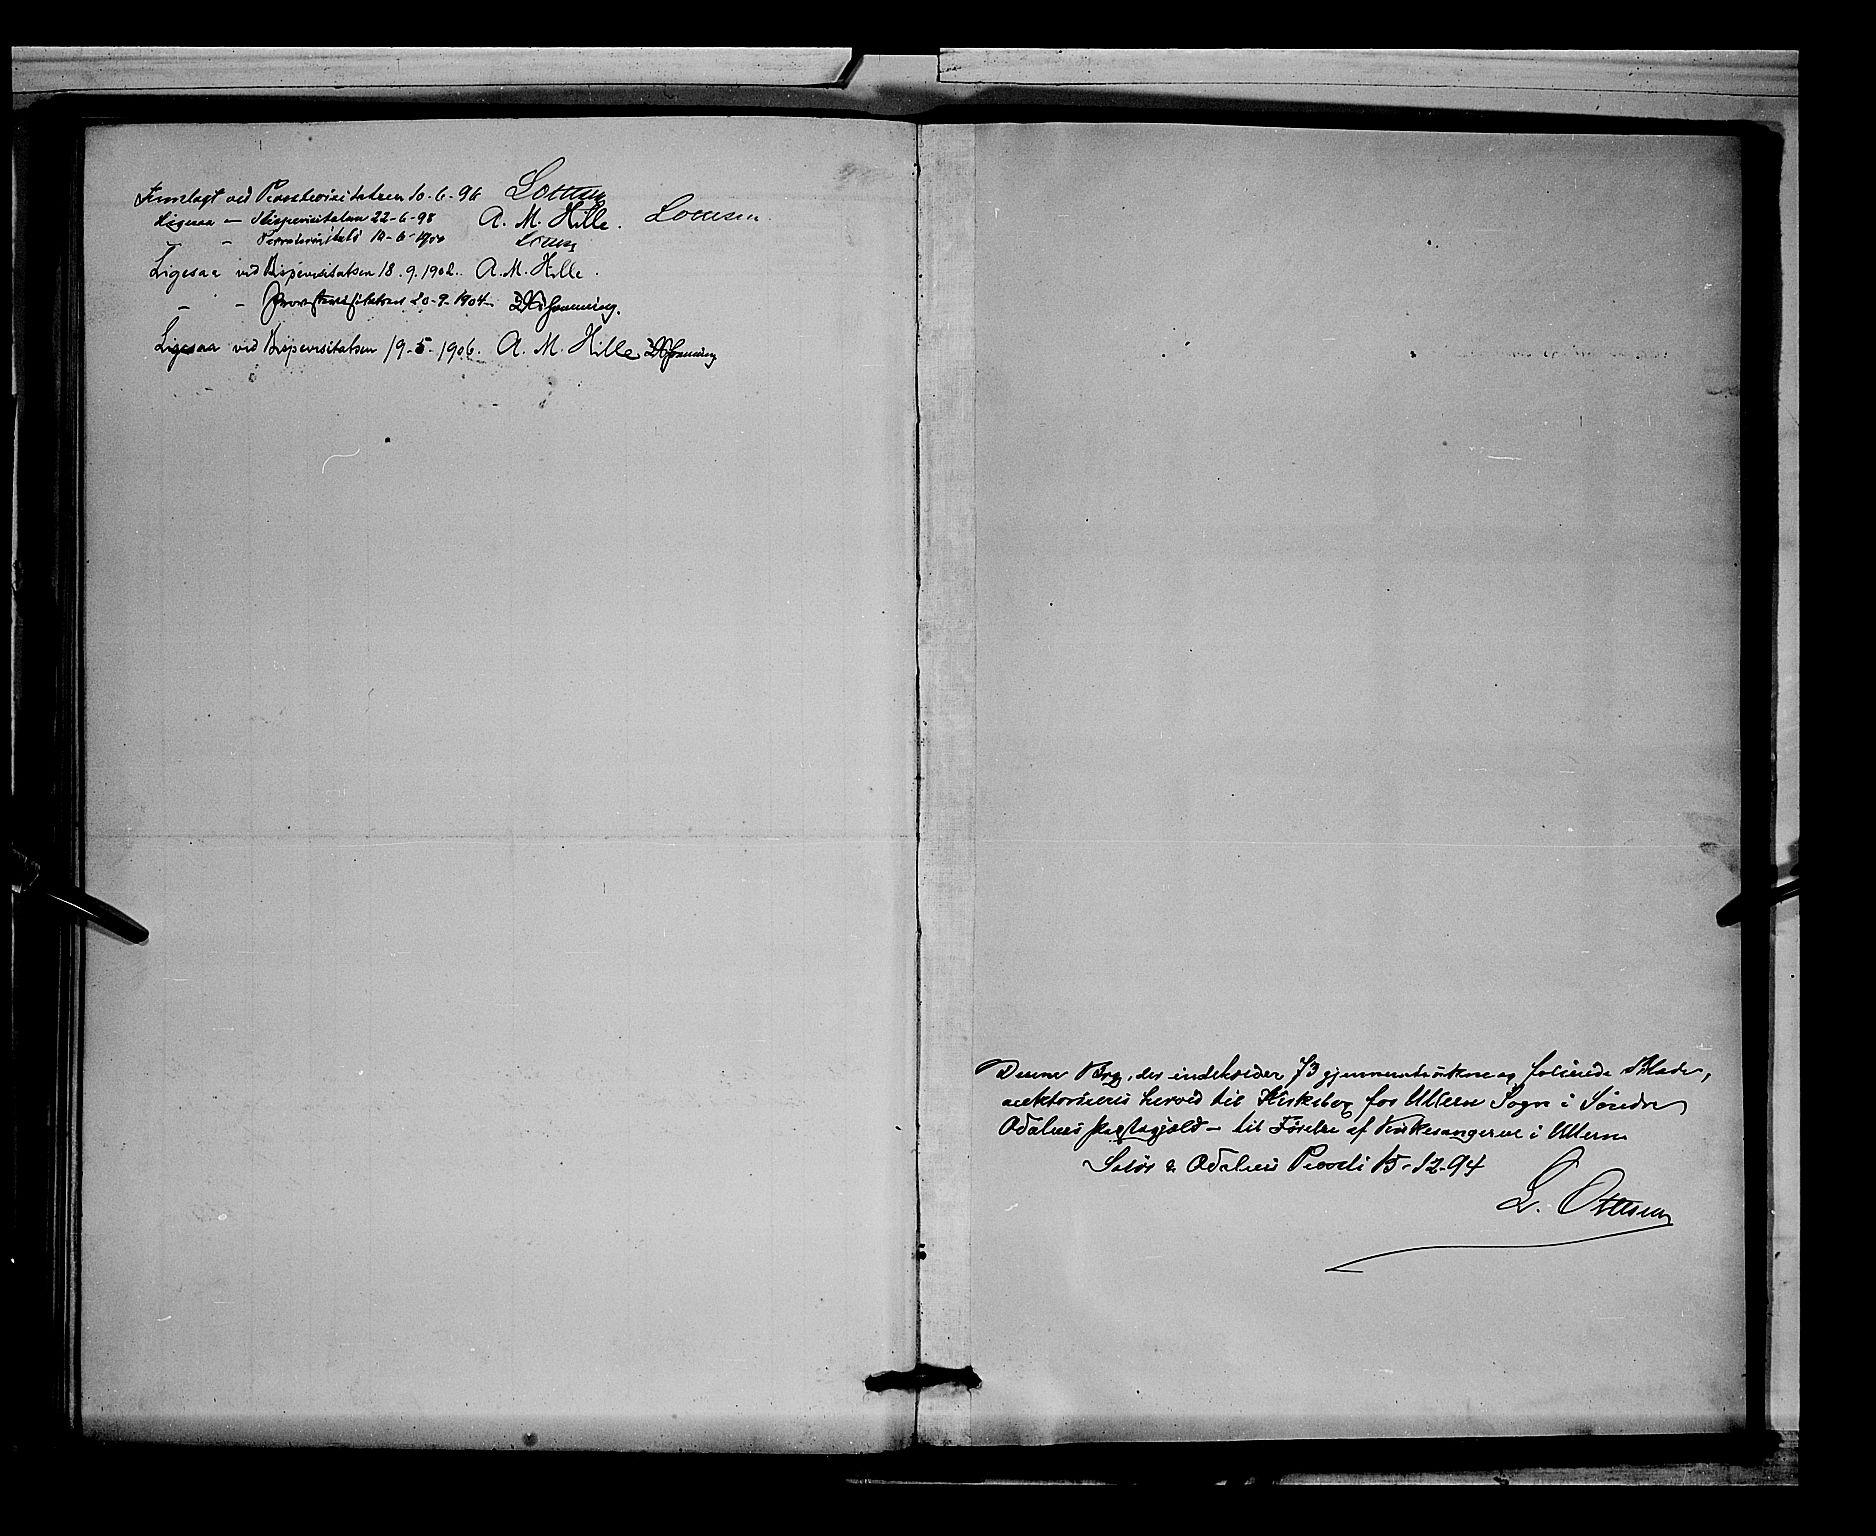 Fremlagt ved Provstevisitatsen 10-6-96 Lottesen
Ligesaa — Bispevisitatsen 22-6-98 A. M. Hille. Lottesen
- Provstevisitats 12-6-1900
Ligesaa ved Bispevisitatsen 18.9.1902. A. M. Hille.
- - Provstevisitatsen 20-9-1904
Ligesaa ved Bispevisitatsen 19-5-1906. A. M. Hille
Denne Bog, der indeholder 73 gjennemtrukne og folierede Blade,
auktoriseres herved til Kirkebog for Ullern Sogn i Søndre
Odalens Præstegjæld - til Førelse af Kirkesangeren i Ullern
Solør & Odalens Provsti 15-12-94
L. Ottesen